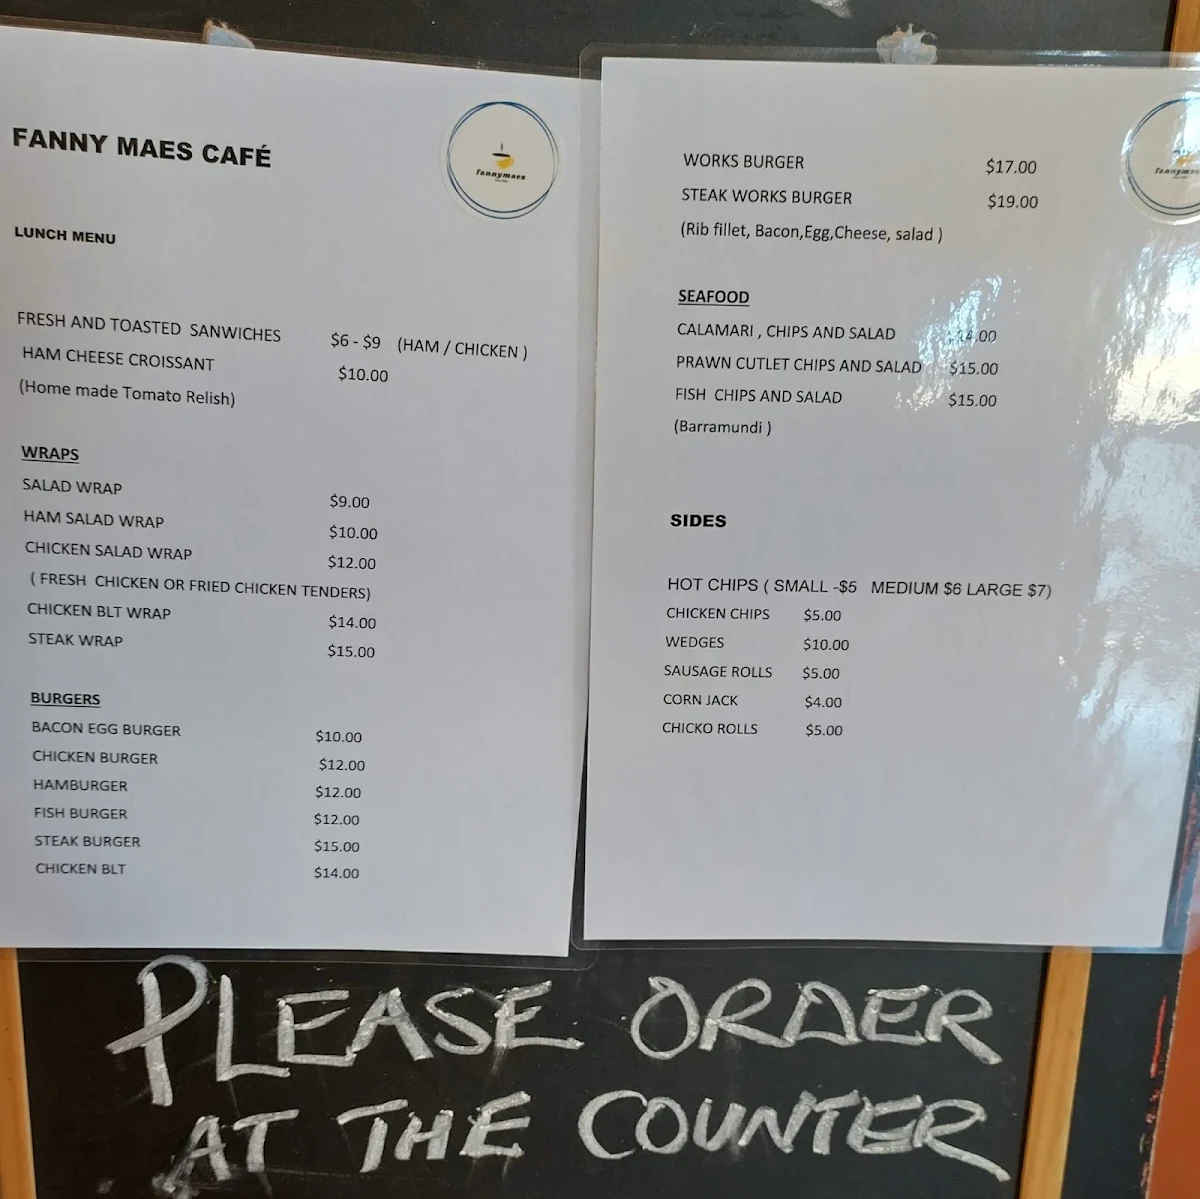 FANNY MAES CAFÉ
fannymaes
LUNCH MENU
FRESH AND TOASTED SANWICHES $6 - $9 (HAM / CHICKEN )
HAM CHEESE CROISSANT $10.00
(Home made Tomato Relish)
WRAPS
SALAD WRAP $9.00
HAM SALAD WRAP $10.00
CHICKEN SALAD WRAP $12.00
( FRESH CHICKEN OR FRIED CHICKEN TENDERS)
CHICKEN BLT WRAP $14.00
STEAK WRAP $15.00
BURGERS
BACON EGG BURGER $10.00
CHICKEN BURGER $12.00
HAMBURGER $12.00
FISH BURGER $12.00
STEAK BURGER $15.00
CHICKEN BLT $14.00
WORKS BURGER $17.00
STEAK WORKS BURGER $19.00
(Rib fillet, Bacon,Egg,Cheese, salad )
SEAFOOD
CALAMARI , CHIPS AND SALAD
PRAWN CUTLET CHIPS AND SALAD $15.00
FISH CHIPS AND SALAD $15.00
(Barramundi )
SIDES
HOT CHIPS ( SMALL -$5 MEDIUM $6 LARGE $7)
CHICKEN CHIPS $5.00
WEDGES $10.00
SAUSAGE ROLLS $5.00
CORN JACK $4.00
CHICKO ROLLS $5.00
PLEASE ORDER
AT THE COUNTER